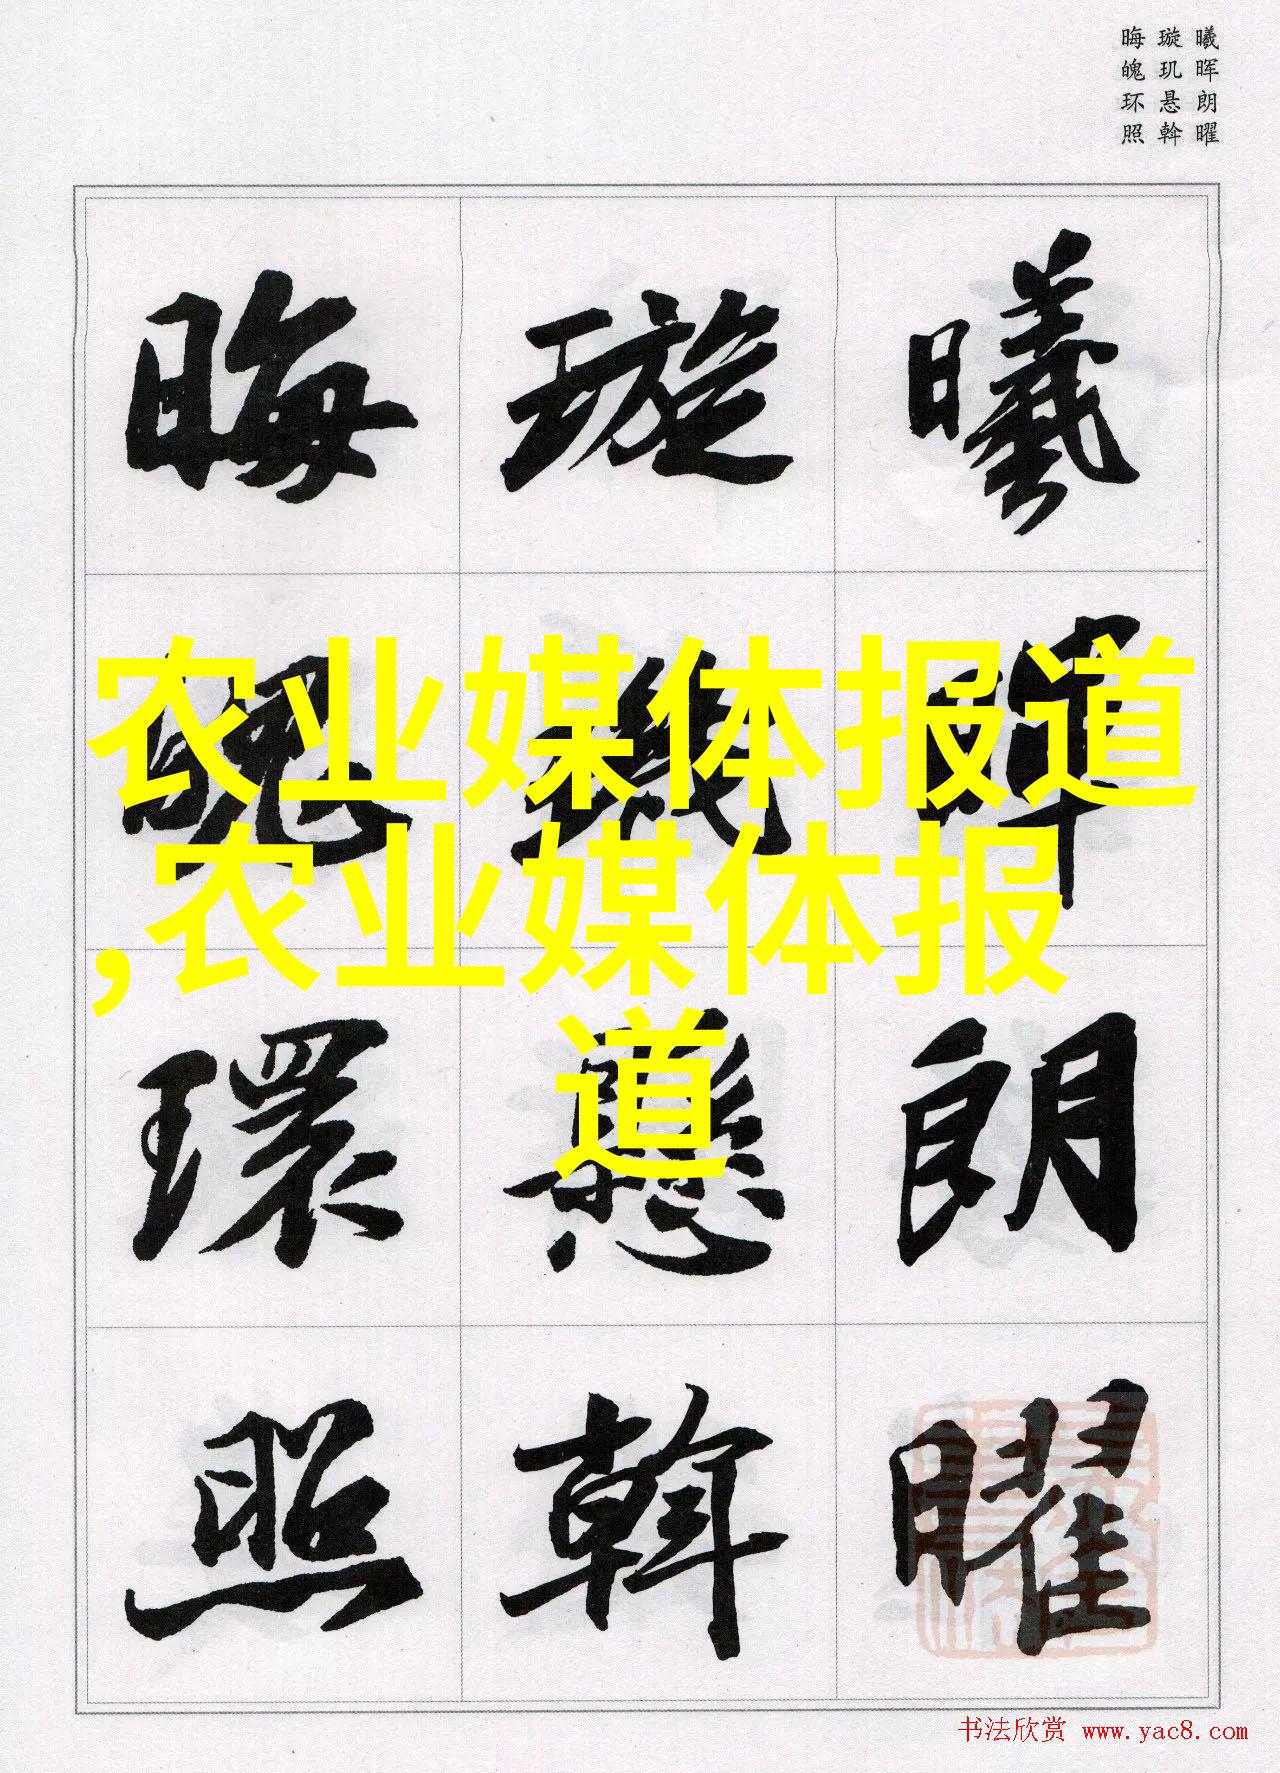 曦晖朗曜
璇玑悬斡
晦魄环照
曦暉朗曜
璇璣懸斡
晦魄環照
农业媒体报道
,农业媒体报
道
书法欣赏 www.yac8.com